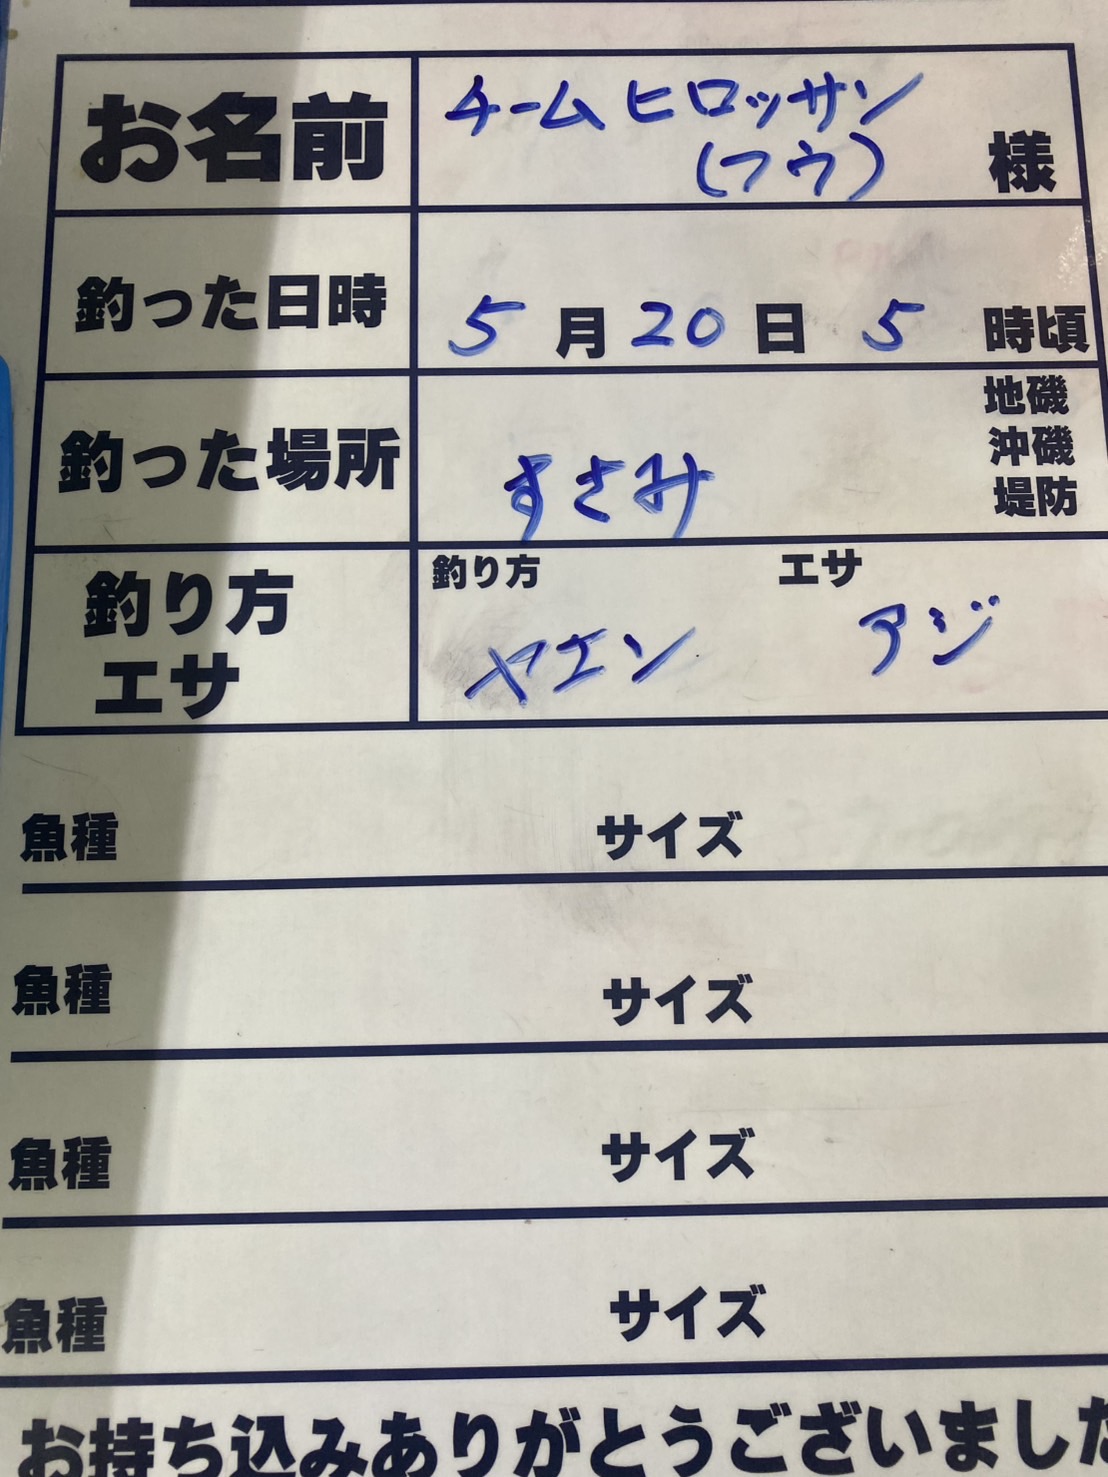 お名前 チームヒロッサン
(フウ) 様
釣った日時 5月20日 5時頃
釣った場所 すさみ 地磯
沖磯
堤防
釣り方 エサ
釣り方 エサ
ヤエン アジ
魚種 サイズ
魚種 サイズ
魚種 サイズ
魚種 サイズ
お持ち込みありがとうございました